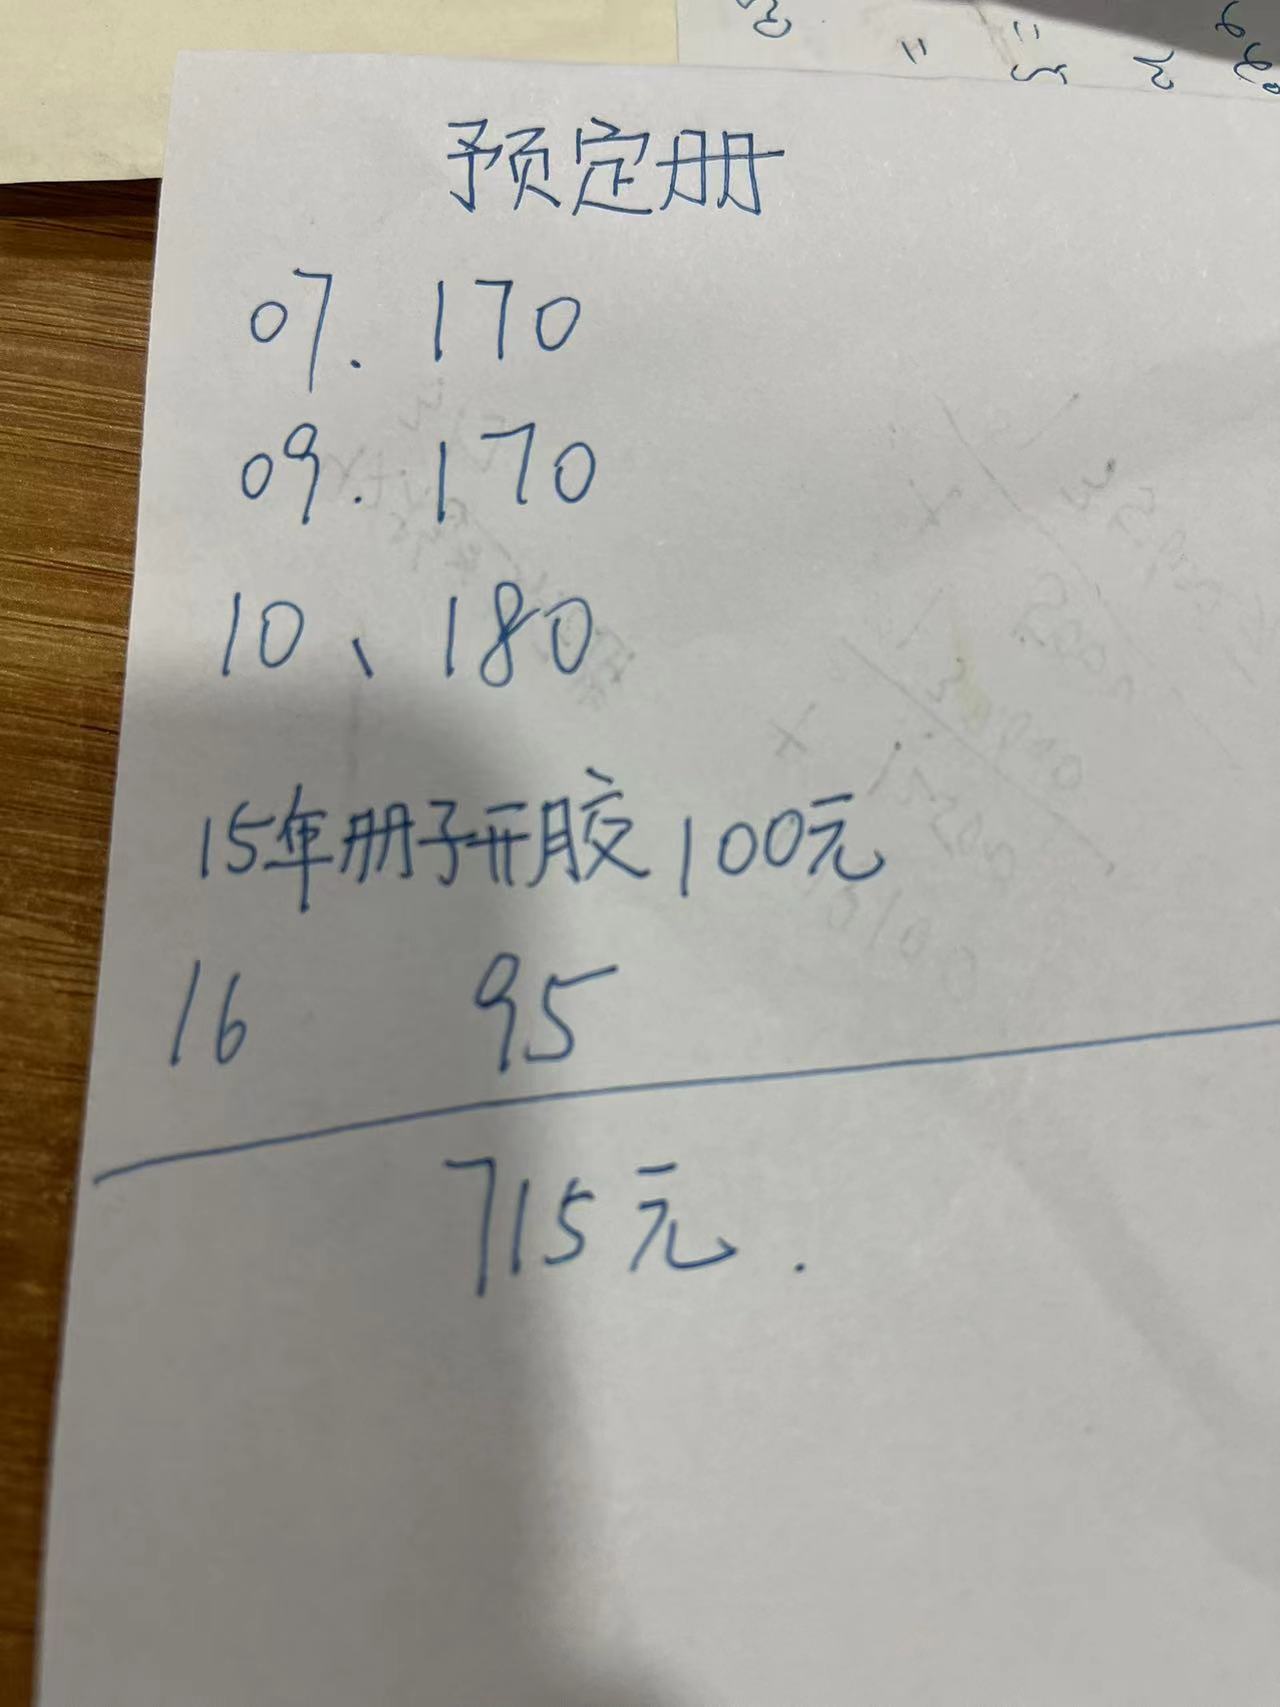 预定册
07. 170
09. 170
10、180
15年册子开胶100元
16 95
715元.